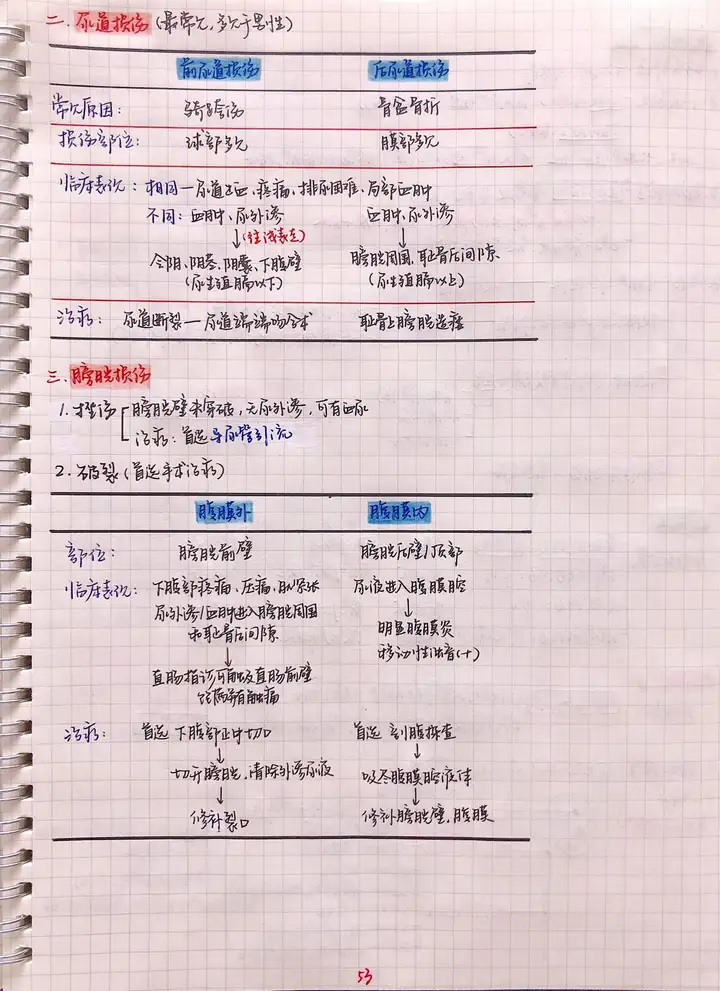 二.尿道损伤(最常见,多见于男性)
前尿道损伤 后尿道损伤
常见原因: 骑跨伤 骨盆骨折
损伤部位: 球部多见 膜部多见
临床表现: 相同—尿道出血、疼痛、排尿困难、局部血肿
不同:血肿、尿外渗 血肿、尿外渗
↓(往浅表走) ↓
会阴、阴茎、阴囊、下腹壁 膀胱周围、耻骨后间隙
(尿生殖膈以下) (尿生殖膈以上)
治疗: 尿道断裂—尿道端端吻合术 耻骨上膀胱造瘘
三.膀胱损伤
1.挫伤 膀胱壁未穿破,无尿外渗,可有血尿
治疗:首选导尿管引流
2.破裂(首选手术治疗)
腹膜外 腹膜内
部位: 膀胱前壁 膀胱后壁/顶部
临床表现: 下腹部疼痛、压痛、肌紧张 尿液进入腹膜腔
尿外渗/血肿进入膀胱周围 ↓
和耻骨后间隙 明显腹膜炎
↓ 移动性浊音(+)
直肠指诊可触及直肠前壁
饱满并有触痛
治疗: 首选 下腹部正中切口 首选 剖腹探查
↓ ↓
切开膀胱,清除外渗尿液 吸尽腹膜腔液体
↓ ↓
修补裂口 修补膀胱壁、腹膜
53